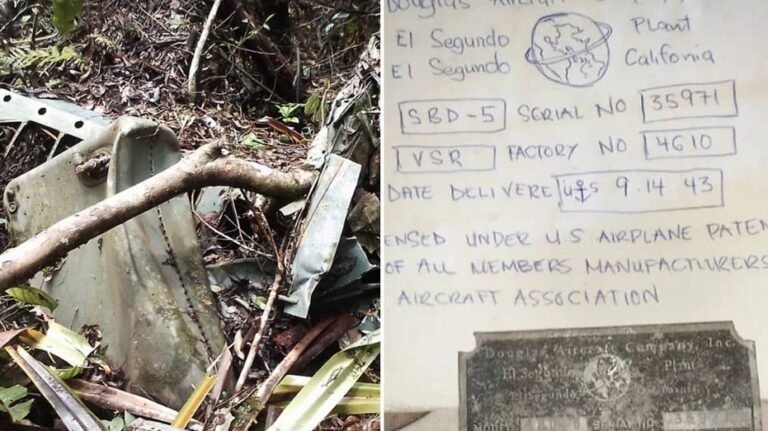 Douglas Aircraft
El Segundo Plant
El Segundo Califonia
SBD-5 SERIAL NO 35971
VSR FACTORY NO 4610
DATE DELIVERE U⚓S 9.14 43
ENSED UNDER U.S AIRPLANE PATEN
OF ALL MEMBERS MANUFACTURERS
AIRCRAFT ASSOCIATION
Douglas Aircraft Company, Inc.
El Segundo Plant
El Segundo
MODEL SERIAL NO